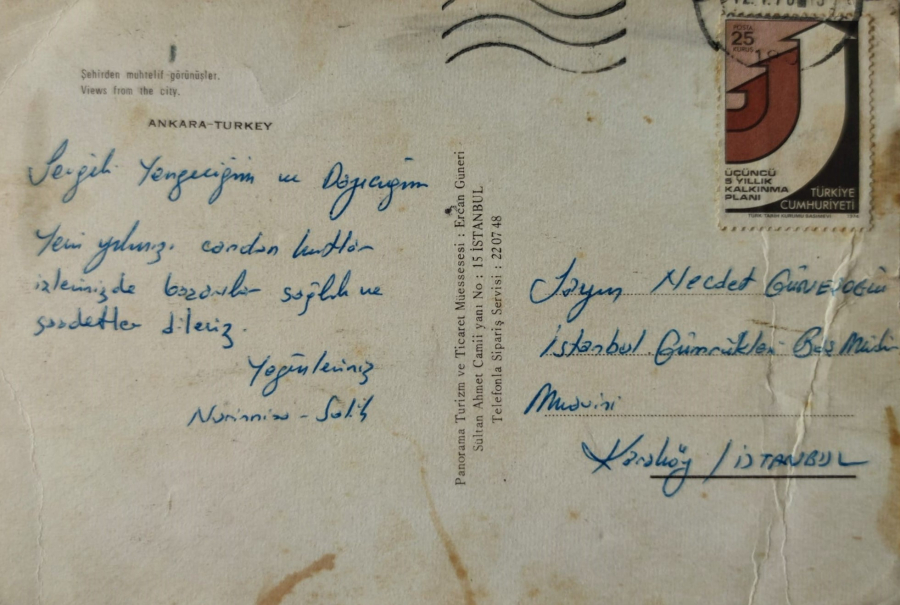 Şehirden muhtelif görünüşler.
Views from the city.
ANKARA-TURKEY
Sevgili Yengeciğim ve Dayıcığım
Yeni yılınızı candan kutlar
izlerinizde başarılar sağlık ve
saadetler dileriz.
Yeğenleriniz
Nurinnisa - Salih
Panorama Turizm ve Ticaret Müessesesi : Ercan Güneri
Sultan Ahmet Camii yanı No : 15 İSTANBUL
Telefonla Sipariş Servisi : 22 07 48
POSTA
25
KURUŞ
ÜÇÜNCÜ
5 YILLIK
KALKINMA
PLANI
TÜRKİYE
CUMHURİYETİ
Sayın Necdet
İstanbul Gümrükleri Baş Müdür
Muavini
Karaköy / İSTANBUL